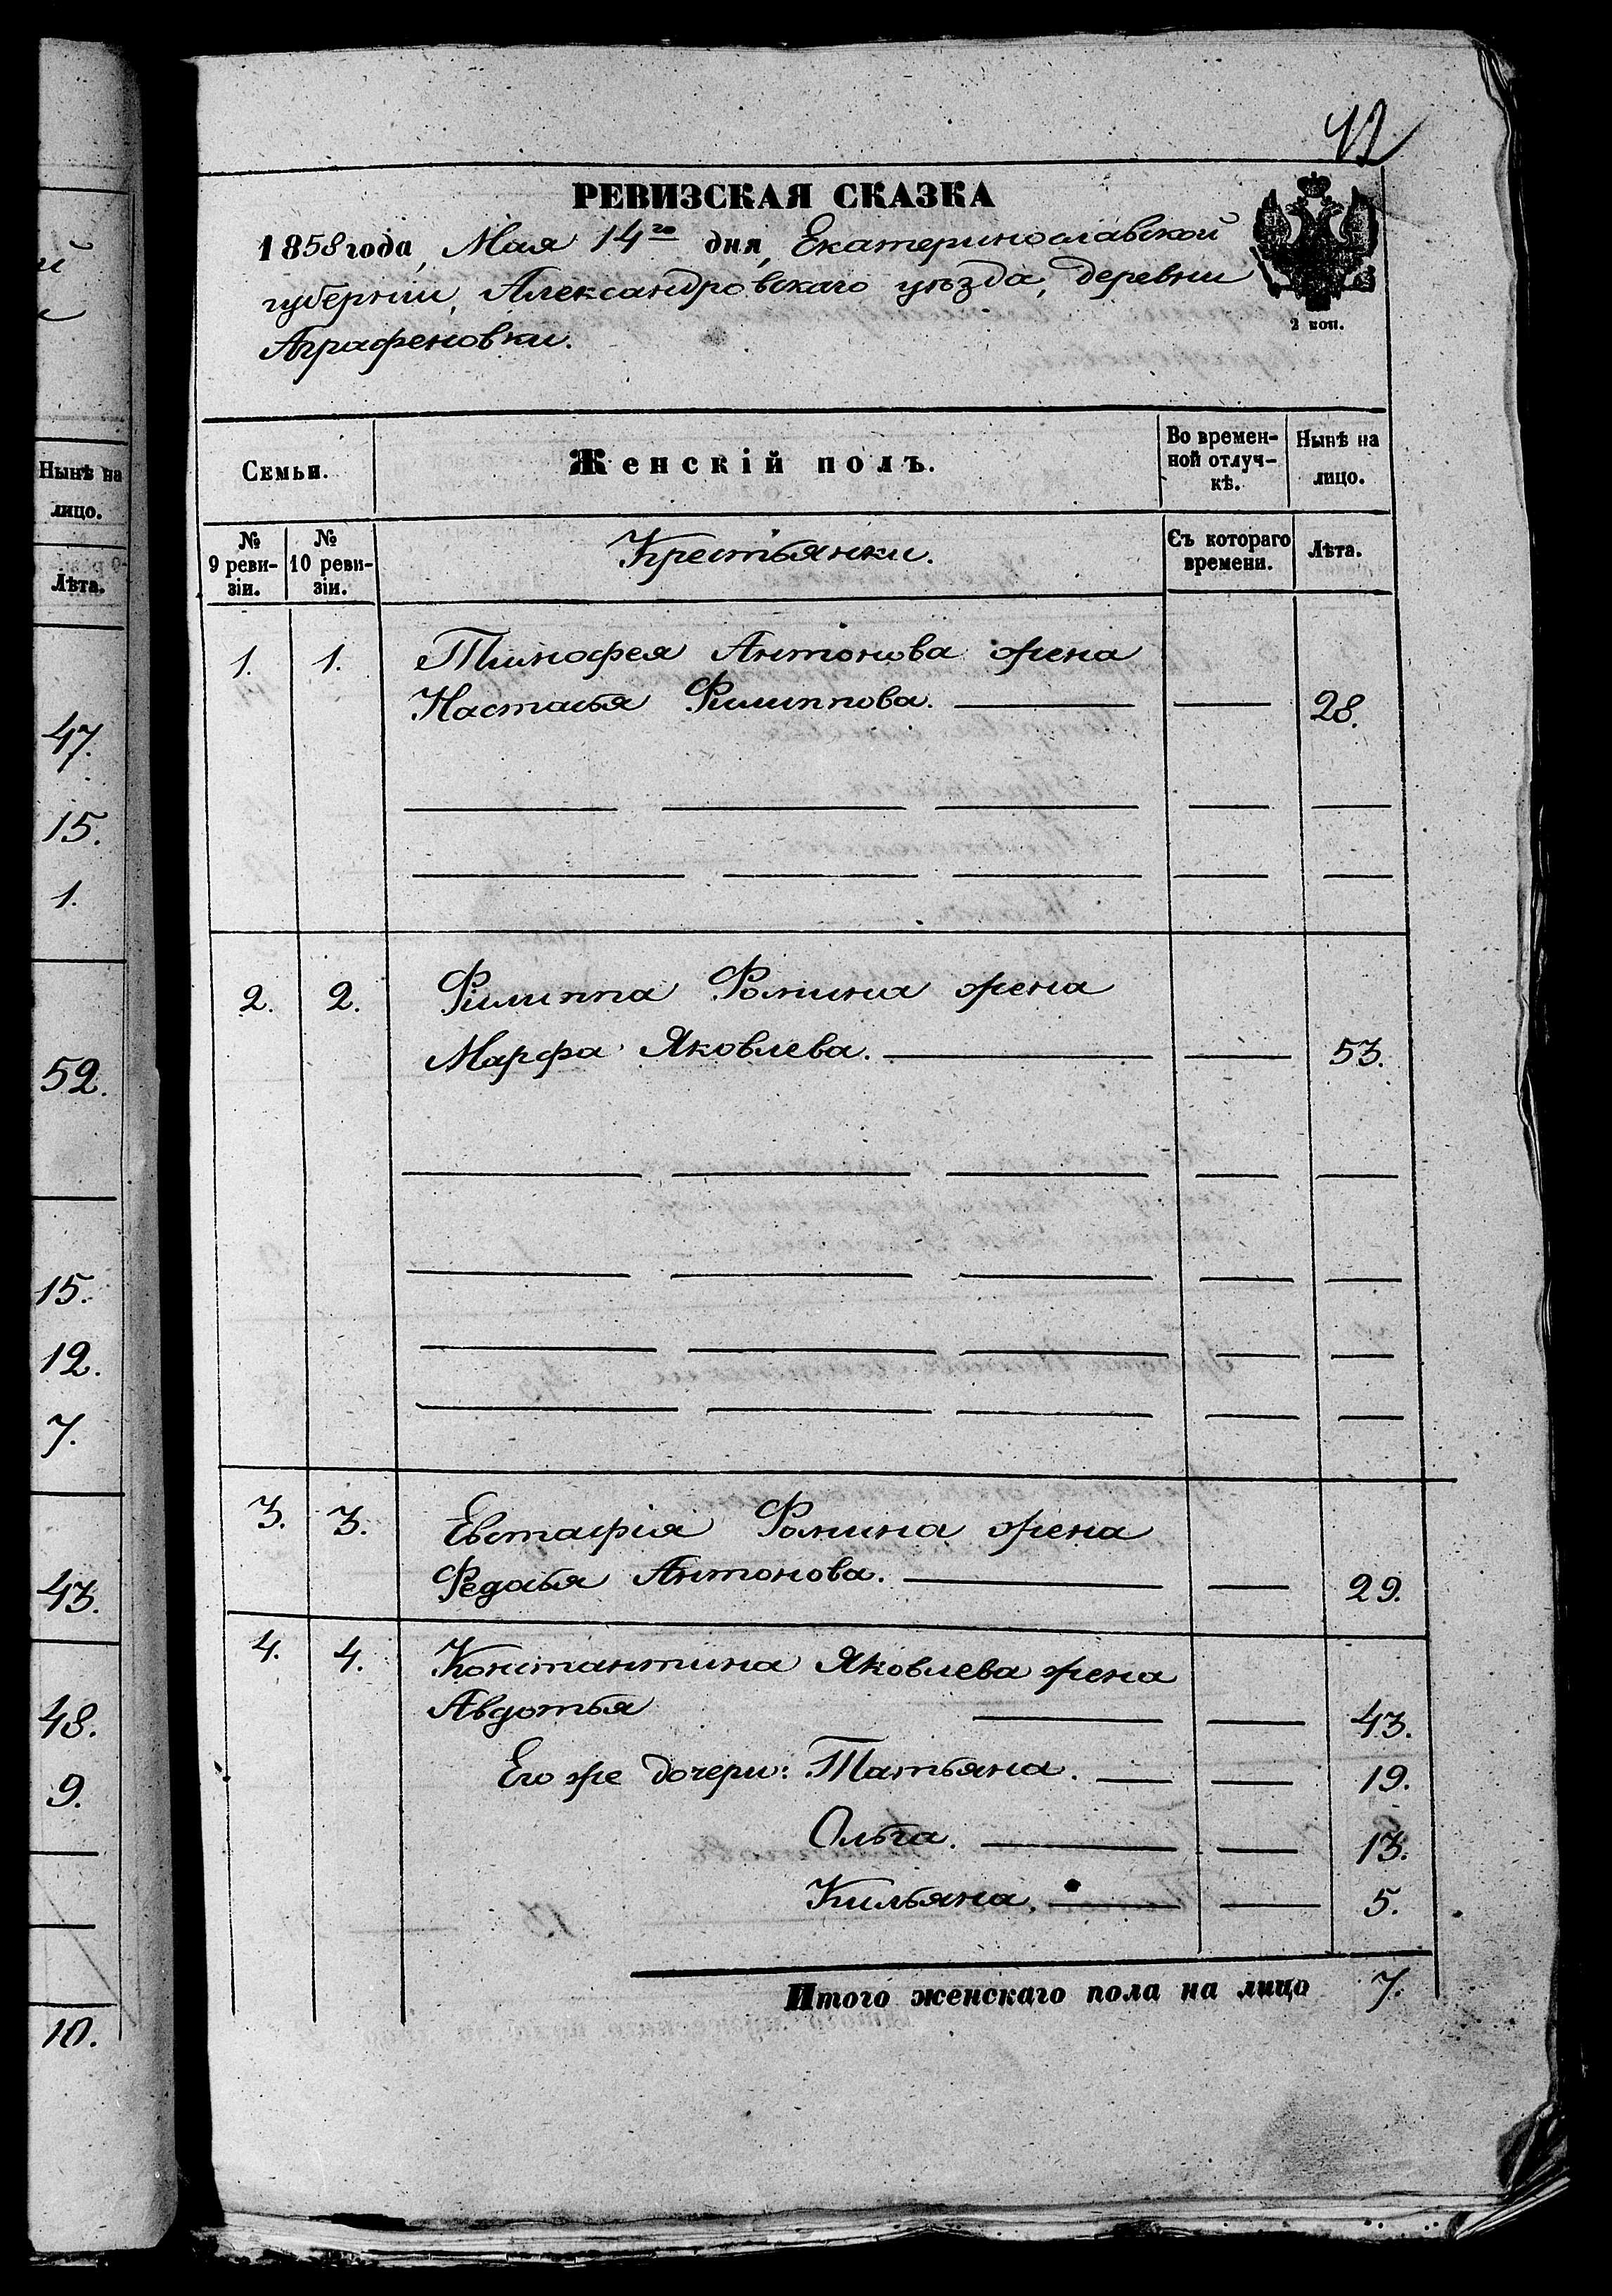 й
Нынѣ на
лицо.
Лѣта.
47.
15.
1.
52.
15.
12.
7.
43.
48.
9.
10.
42
РЕВИЗСКАЯ СКАЗКА
1858 года, Мая 14го дня, Екатеринославской
губерніи, Александровскаго уѣзда, деревни
Аграфеновки.
2 коп.
Семьи.
Женскій полъ.
Во времен-
ной отлуч-
кѣ.
Нынѣ на
лицо.
№
9 реви-
зіи.
№
10 реви-
зіи.
Крестьянки.
Съ котораго
времени.
Лѣта.
1. 1. Тимофея Антонова жена
Настасья Филиппова. 28.
2. 2. Филиппа Фомина жена
Марфа Яковлева. 53.
3. 3. Евстафія Фомина жена
Федосья Антонова. 29.
4. 4. Константина Яковлева жена
Авдотья 43.
Его же дочери: Татьяна. 19.
Ольга. 13.
Кильяна. 5.
Итого женскаго пола на лицо 7.